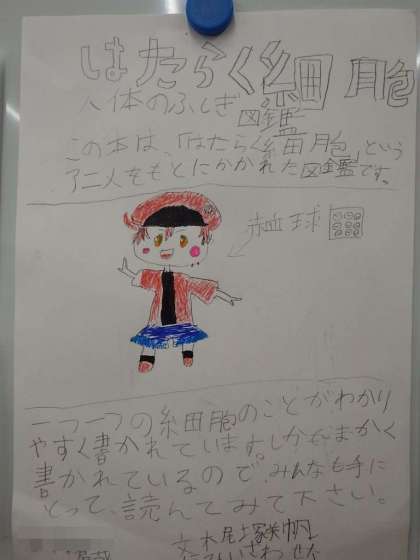 はたらく細胞
人体のふしぎ図鑑
この本は、「はたらく細胞」という
アニメをもとにかかれた図鑑です。
赤血球
一つ一つの細胞のことがわかり
やすく書かれています。しかもまかく
書かれているので、みんなも手に
とって、読んでみて下さい。